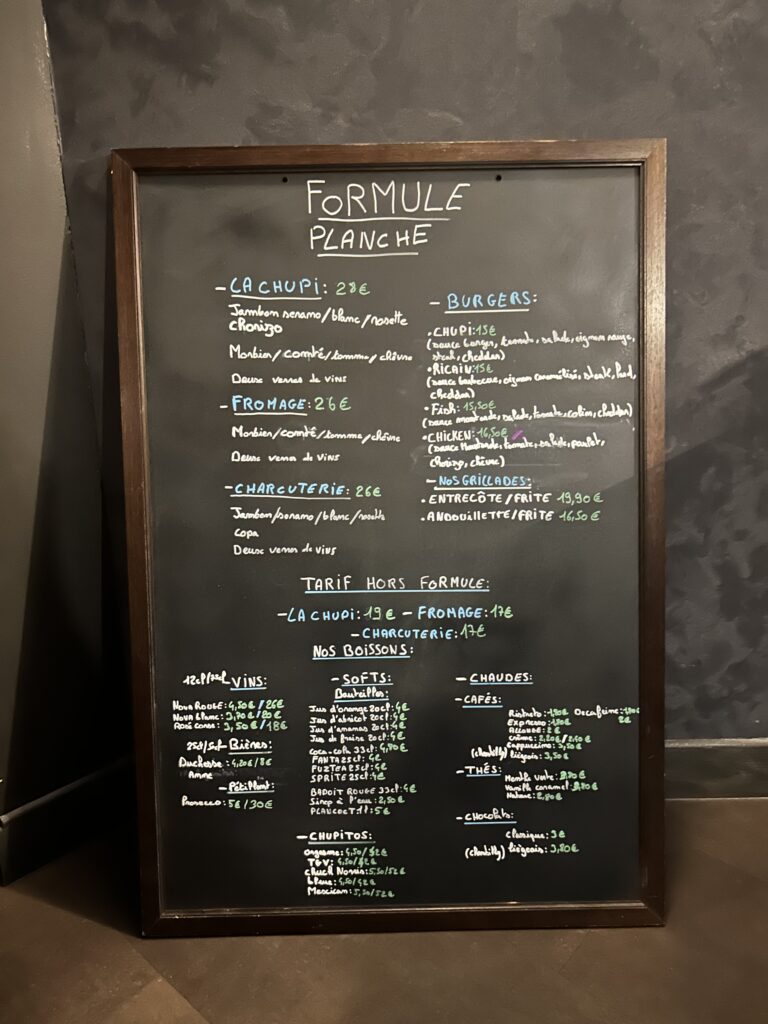 FORMULE
PLANCHE
- LA CHUPI: 28€
Jambon serano/blanc/rosette
chorizo
Morbier/comté/tomme/chèvre
Deux verres de vins
- FROMAGE: 26€
Morbier/comté/tomme/chèvre
Deux verres de vins
- CHARCUTERIE: 26€
Jambon/serano/blanc/rosette
copa
Deux verres de vins
- BURGERS:
. CHUPI: 15€
(sauce burger, tomate, salade, oignon rouge,
steak, cheddar)
. RICAIN: 15€
(sauce barbecue, oignon caramélisé, steak, lard,
cheddar)
. Fish: 15,50€
(sauce moutarde, salade, tomate, colin, cheddar)
. CHICKEN: 16,50€
(sauce Moutarde, tomate, salade, poulet,
chorizo, chèvre)
- NOS GRILLADES:
. ENTRECÔTE/FRITE 19,90€
. ANDOUILLETTE/FRITE 16,50€
TARIF HORS FORMULE:
- LA CHUPI: 19€ - FROMAGE: 17€
- CHARCUTERIE: 17€
NOS BOISSONS:
12cl/75cl VINS:
NOVA ROUGE: 4,50€/26€
NOVA blanc: 3,90€/20€
ROSÉ CORSE: 3,50€/18€
25cl/50cl Bières:
Duchesse: 4,20€/8€
- Pétillant:
PROSECCO: 5€/30€
- SOFTS:
Bouteilles:
Jus d'orange 20cl: 4€
Jus d'abricot 20cl: 4€
Jus d'ananas 20cl: 4€
Jus de fraise 20cl: 4€
COCA-COLA 33cl: 4,90€
FANTA 25cl: 4€
FUZTEA 25cl: 4€
SPRITE 25cl: 4€
BADOIT ROUGE 33cl: 4€
Sirop à l'eau: 2,50€
- CHUPITOS:
Orgasme: 4,50/42€
TGV: 4,50/42€
chuck Norris: 5,50/52€
bleue: 4,50/42€
Mexicain: 5,50/52€
- CHAUDES:
- CAFÉS:
Ristreto: 1,90€ Decafeine: 1,90€
Expresso: 1,90€ 2€
ALLONGÉ: 2€
crème: 2,20€/2,60€
Cappuccino: 3,50€
(chantilly) liégeois: 3,50€
- THÉS:
Menthe verte: 2,80€
Vanille caramel: 2,80€
Nature: 2,80€
- CHOCOLATS:
classique: 3€
(chantilly) liégeois: 3,80€